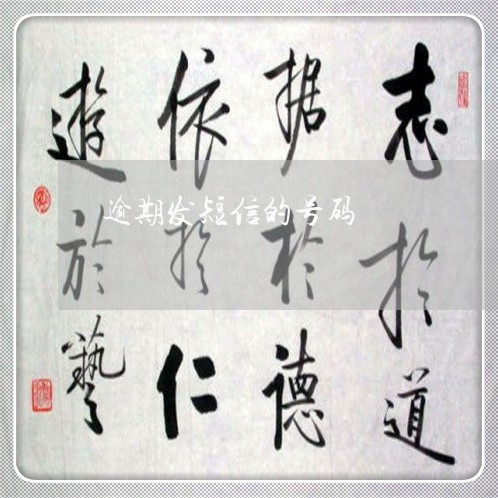 志於道
据於德
依於仁
遊於藝
逾期发短信的号码